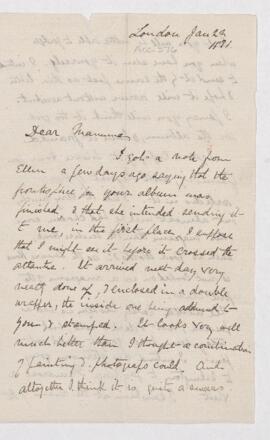 London Jan 29
1881.
ACC-576
Dear Mamma,
I got a note from
Ellen a few days ago, saying that the
frontispiece for your album was
finished & that she intended sending it
to me, in the first place I suppose
that I might see it before it crossed the
Atlantic. It arrived next day, very
neatly done up, & enclosed in a double
wrapper, the inside one being addressed to
you & stamped. It looks very well
much better than I thought a combination
of painting & photographs could. And
altogether I think it is quite a success